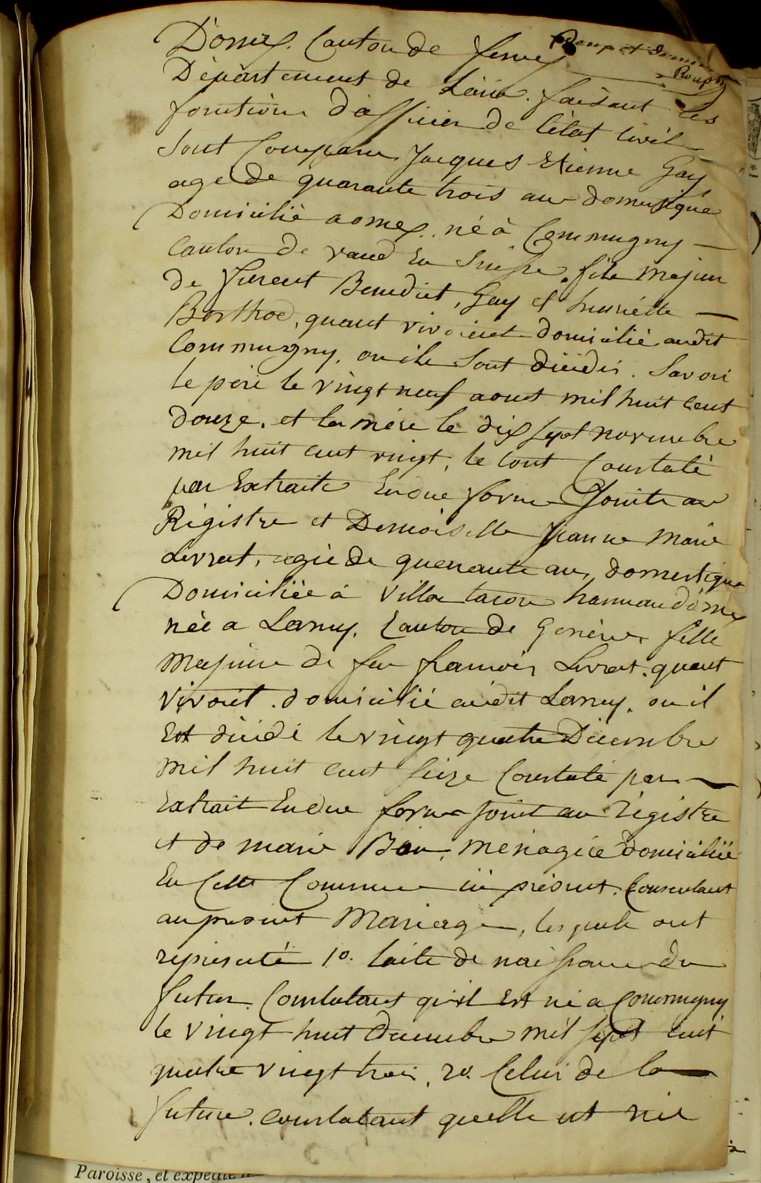 D'ornex. Canton de ferney
Département de L'ain. faisant les
fonctions d'officier de l'état civil
Sont Comparu Jacques Etienne Gay
age de quarante trois ans domestique
Domicilié a ornex. né à Commugny
Canton de vaud En Suisse. fils Majeur
de Benedict, Gay et
quant vivoient domicilié audit
Commugny. ou ils Sont décédés. Savoir
le père le vingt neuf aoust mil huit Cent
douze. et la mère le dix sept novembre
mil huit cent vingt, le tout Constaté
par Extraits En due forme Joints au
Régistre et Demoiselle Jeanne Marie
Livrat, agée de quarante ans, domestique
Domiciliée à Villa tacon hameau d'ornex
née a Lancy. Canton de Genève fille
Majeure de feu françois Livrat. quant
vivoit. domicilié audit Lancy. ou il
Est décédé le vingt quatre Décembre
mil huit cent seize Constaté par
Extrait En due forme joint au régistre
et de marie ménagère domiciliée
En Cette Commune ici présent. Consentant
au present Mariage, lesquels ont
représenté 1o. l'acte de naissance du
futur. Constatant qu'il Est né a Commugny
le vingt huit decembre mil sept cent
quatre vingt trois, 2o. Celui de la
future. constatant quelle est née
Paroisse, et expédié